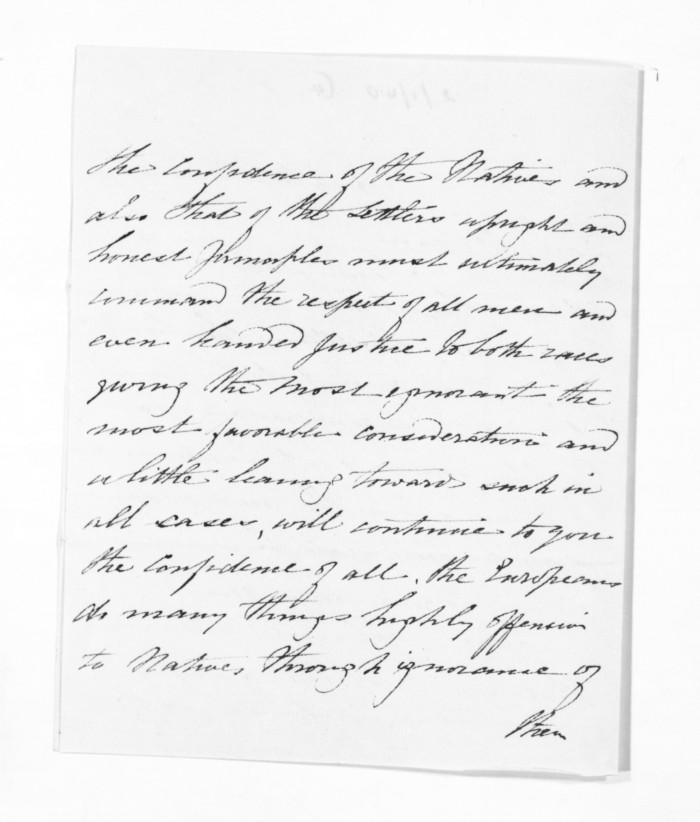 the confidence of the Natives and
also that of the Settlers upright and
honest principles must ultimately
command the respect of all men and
even handed Justice to both races
giving the most ignorant the
most favorable consideration and
a little leaning toward such in
all cases, will continue to you
the confidence of all. the Europeans
do many things highly offensive
to Natives through ignorance of
their